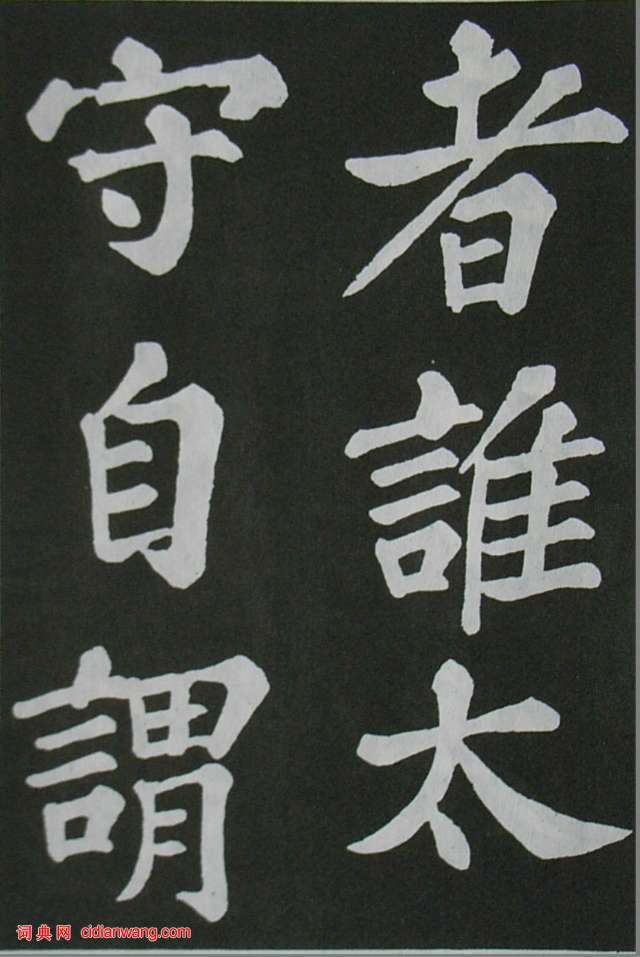 者誰太
守自謂
词典网 cidianwang.com